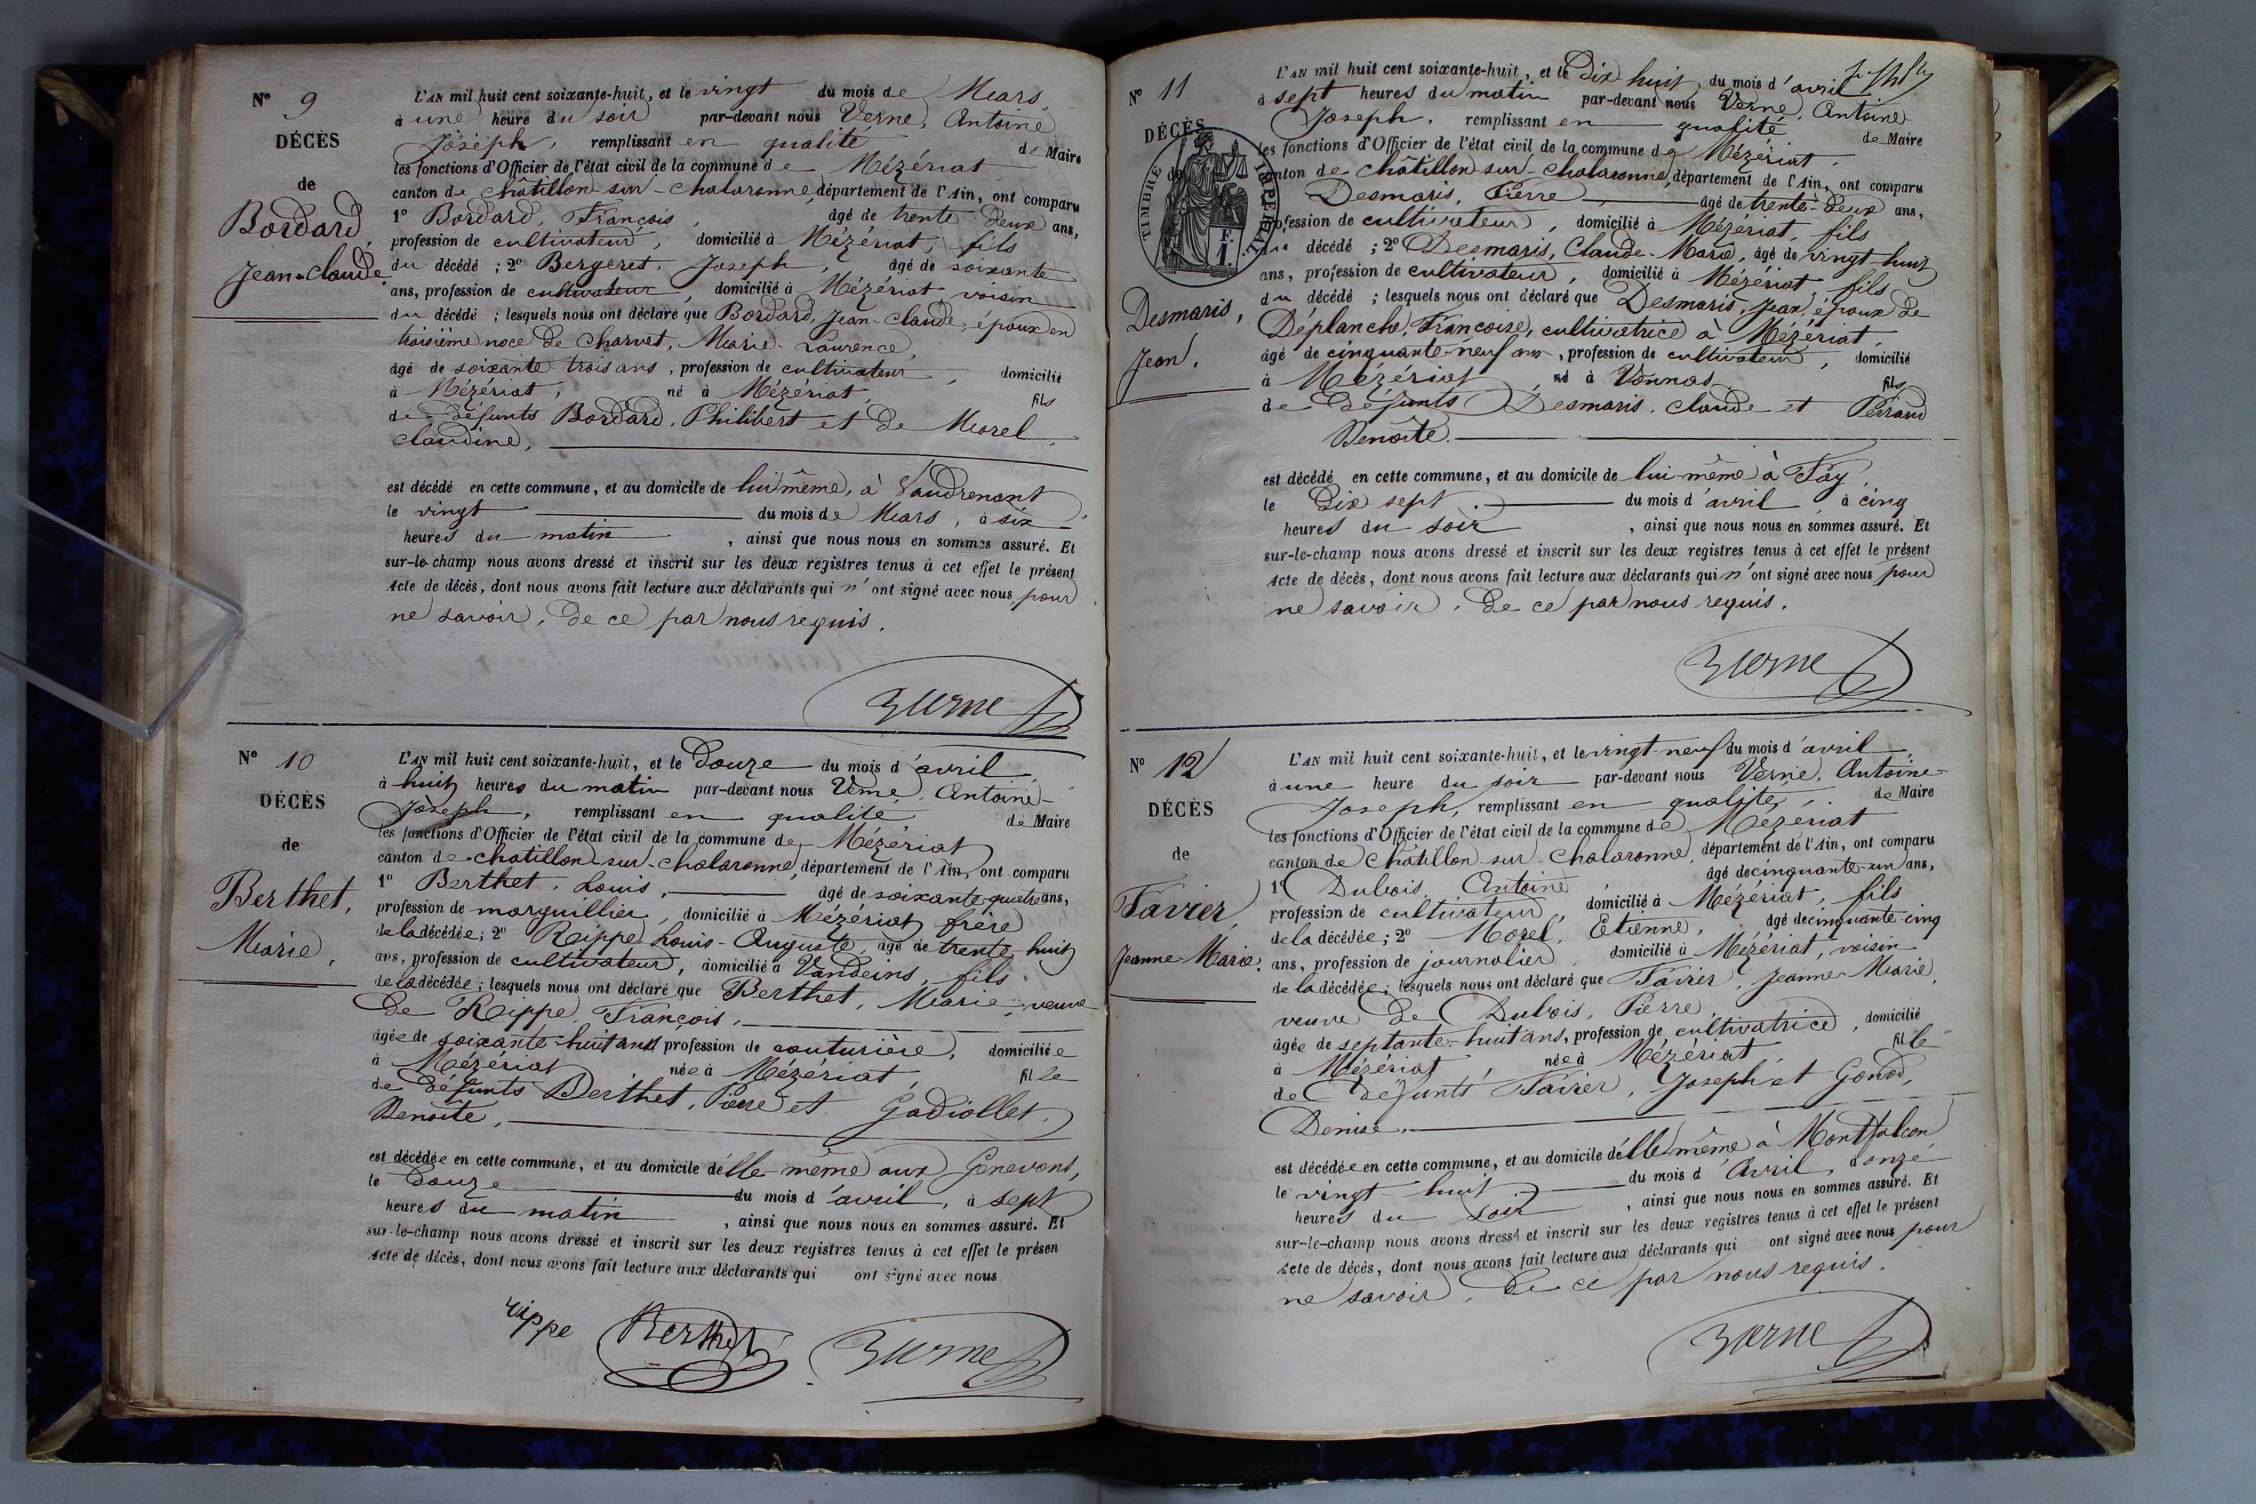 N° 9
DÉCÈS
de
Bordard,
Jean-Claude.
L'AN mil huit cent soixante-huit, et le vingt du mois de Mars,
à une heure du soir par-devant nous Verne, Antoine
Joseph, remplissant en qualité de Maire
les fonctions d'Officier de l'état civil de la commune de Mézériat
canton de Châtillon-sur-Chalaronne, département de l'Ain, ont comparu
1° Bordard, François, âgé de trente-deux ans,
profession de cultivateur, domicilié à Mézériat, fils
du décédé ; 2° Bergeret, Joseph, âgé de soixante
ans, profession de cultivateur, domicilié à Mézériat voisin
du décédé ; lesquels nous ont déclaré que Bordard, Jean-Claude, époux en
troisième noce de Charvet, Marie-Laurence,
âgé de soixante trois ans, profession de cultivateur, domicilié
à Mézériat, né à Mézériat, fils
de défunts Bordard, Philibert et de Morel
Claudine,
est décédé en cette commune, et au domicile de lui même, à Vaudrenant
le vingt du mois de Mars, à six
heures du matin, ainsi que nous nous en sommes assuré. Et
sur-le-champ nous avons dressé et inscrit sur les deux registres tenus à cet effet le présent
Acte de décès, dont nous avons fait lecture aux déclarants qui n'ont signé avec nous pour
ne savoir, de ce par nous requis.
Verne
N° 10
DÉCÈS
de
Berthet,
Marie,
L'AN mil huit cent soixante-huit, et le douze du mois d'avril,
à huit heures du matin par-devant nous Verne, Antoine-
Joseph, remplissant en qualité de Maire
les fonctions d'Officier de l'état civil de la commune de Mézériat
canton de Chatillon-sur-Chalaronne, département de l'Ain, ont comparu
1° Berthet, Louis, âgé de soixante-quatre ans,
profession de marguillier, domicilié à Mézériat frère
de la décédée ; 2° Rippe Louis-Auguste, âgé de trente-huit
ans, profession de cultivateur, domicilié à Vandeins, fils
de la décédée ; lesquels nous ont déclaré que Berthet, Marie, veuve
de Rippe, François,
âgée de soixante-huit ans, profession de couturière, domiciliée
à Mézériat née à Mézériat, fille
de défunts Berthet, Pierre et Gadiollet,
Benoîte,
est décédée en cette commune, et au domicile d'elle-même aux Genevons,
le douze du mois d'avril, à sept
heures du matin, ainsi que nous nous en sommes assuré. Et
sur-le-champ nous avons dressé et inscrit sur les deux registres tenus à cet effet le présen
Acte de décès, dont nous avons fait lecture aux déclarants qui ont signé avec nous
rippe Berthet Verne
N° 11
DÉCÈS
de
TIMBRE IMPERIAL
F.
1.
Desmaris,
Jean.
L'AN mil huit cent soixante-huit, et le Dix huit du mois d'avril
à sept heures du matin par-devant nous Verne, Antoine
Joseph, remplissant en qualité de Maire
les fonctions d'Officier de l'état civil de la commune de Mézériat
canton de Châtillon-sur-Chalaronne, département de l'Ain, ont comparu
Desmaris, Pierre âgé de trente-deux ans,
profession de cultivateur, domicilié à Mézériat, fils
du décédé ; 2° Desmaris, Claude-Marie, âgé de vingt-huit
ans, profession de cultivateur, domicilié à Mézériat fils
du décédé ; lesquels nous ont déclaré que Desmaris, Jean, époux de
Déplanche, Françoise, cultivatrice à Mézériat,
âgé de cinquante-neuf ans, profession de cultivateur, domicilié
à Mézériat, né à Vonnas fils
de défunts Desmaris, Claude et Perraud
Benoîte.
est décédé en cette commune, et au domicile de lui-même à Fay,
le Dix sept du mois d'avril à cinq
heures du soir, ainsi que nous nous en sommes assuré. Et
sur-le-champ nous avons dressé et inscrit sur les deux registres tenus à cet effet le présent
Acte de décès, dont nous avons fait lecture aux déclarants qui n'ont signé avec nous pour
ne savoir, de ce par nous requis.
Verne
N° 12
DÉCÈS
de
Favier,
Jeanne-Marie.
L'AN mil huit cent soixante-huit, et le vingt-neuf du mois d'avril,
à une heure du soir par-devant nous Verne, Antoine-
Joseph, remplissant en qualité, de Maire
les fonctions d'Officier de l'état civil de la commune de Mézériat
canton de Châtillon-sur-Chalaronne, département de l'Ain, ont comparu
1° Dubois, Antoine âgé de cinquante-un ans,
profession de cultivateur, domicilié à Mézériat, fils
de la décédée ; 2° Morel, Etienne, âgé de cinquante-cinq
ans, profession de journalier, domicilié à Mézériat, voisin
de la décédée ; lesquels nous ont déclaré que Favier, Jeanne-Marie,
veuve de Dubois, Pierre,
âgée de septante-huit ans, profession de cultivatrice, domicilié
à Mézériat, née à Mézériat, fille
de défunts Favier, Joseph et Gonod,
Denise.
est décédée en cette commune, et au domicile d'elle même à Montfalcon
le vingt-huit du mois d'Avril, à onze
heures du soir, ainsi que nous nous en sommes assuré. Et
sur-le-champ nous avons dressé et inscrit sur les deux registres tenus à cet effet le présent
Acte de décès, dont nous avons fait lecture aux déclarants qui ont signé avec nous pour
ne savoir, de ce par nous requis.
Verne